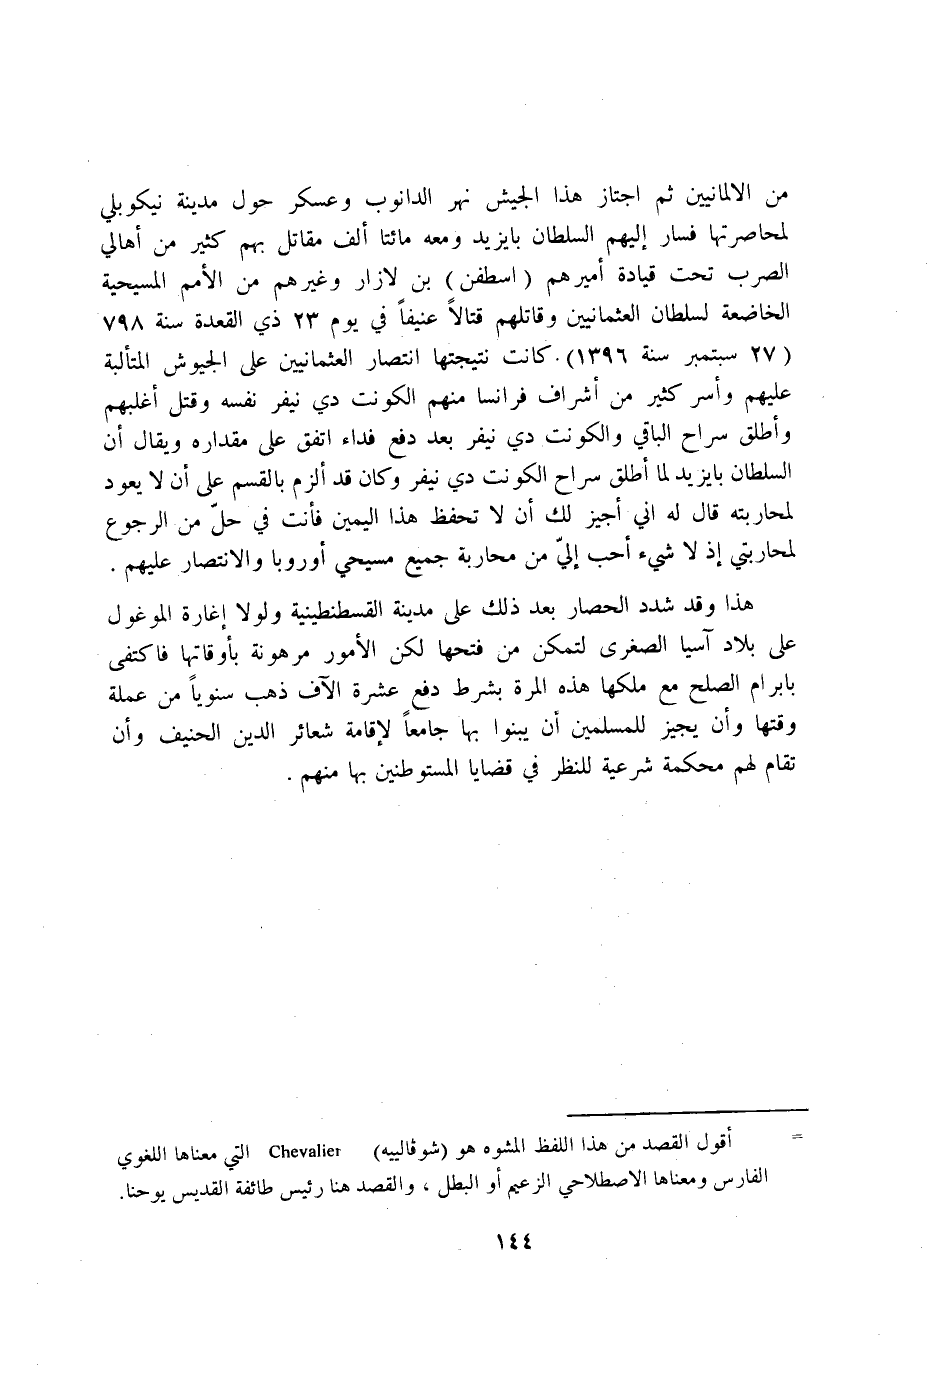 من الالمانيين ثم اجتاز هذا الجيش نهر الدانوب وعسكر حول مدينة نيكوبلي
لمحاصرتها فسار إليهم السلطان بايزيد ومعه مائتا ألف مقاتل بهم كثير من أهالي
الصرب تحت قيادة أميرهم ( اسطفن ) بن لازار وغيرهم من الأمم المسيحية
الخاضعة لسلطان العثمانيين وقاتلهم قتالاً عنيفاً في يوم ٢٣ ذي القعدة سنة ٧٩٨
( ٢٧ سبتمبر سنة ١٣٩٦). كانت نتيجتها انتصار العثمانيين على الجيوش المتألبة
عليهم وأسر كثير من أشراف فرانسا منهم الكونت دي نيفر نفسه وقتل أغلبهم
وأطلق سراح الباقي والكونت دي نيفر بعد دفع فداء اتفق على مقداره ويقال أن
السلطان بايزيد لما أطلق سراح الكونت دي نيفر وكان قد ألزم بالقسم على أن لا يعود
لمحاربته قال له اني أجيز لك أن لا تحفظ هذا اليمين فأنت في حلّ من الرجوع
لمحاربتي إذ لا شيء أحب إليّ من محاربة جميع مسيحي أوروبا والانتصار عليهم .
هذا وقد شدد الحصار بعد ذلك على مدينة القسطنطينية ولولا إغارة الموغول
على بلاد آسيا الصغرى لتمكن من فتحها لكن الأمور مرهونة بأوقاتها فاكتفى
بابرام الصلح مع ملكها هذه المرة بشرط دفع عشرة الآف ذهب سنوياً من عملة
وقتها وأن يجيز للمسلمين أن يبنوا بها جامعاً لإقامة شعائر الدين الحنيف وأن
تقام لهم محكمة شرعية للنظر في قضايا المستوطنين بها منهم .
= أقول القصد من هذا اللفظ المشوه هو (شوڤالييه) Chevalier التي معناها اللغوي
الفارس ومعناها الاصطلاحي الزعيم أو البطل ، والقصد هنا رئيس طائفة القديس يوحنا.
١٤٤